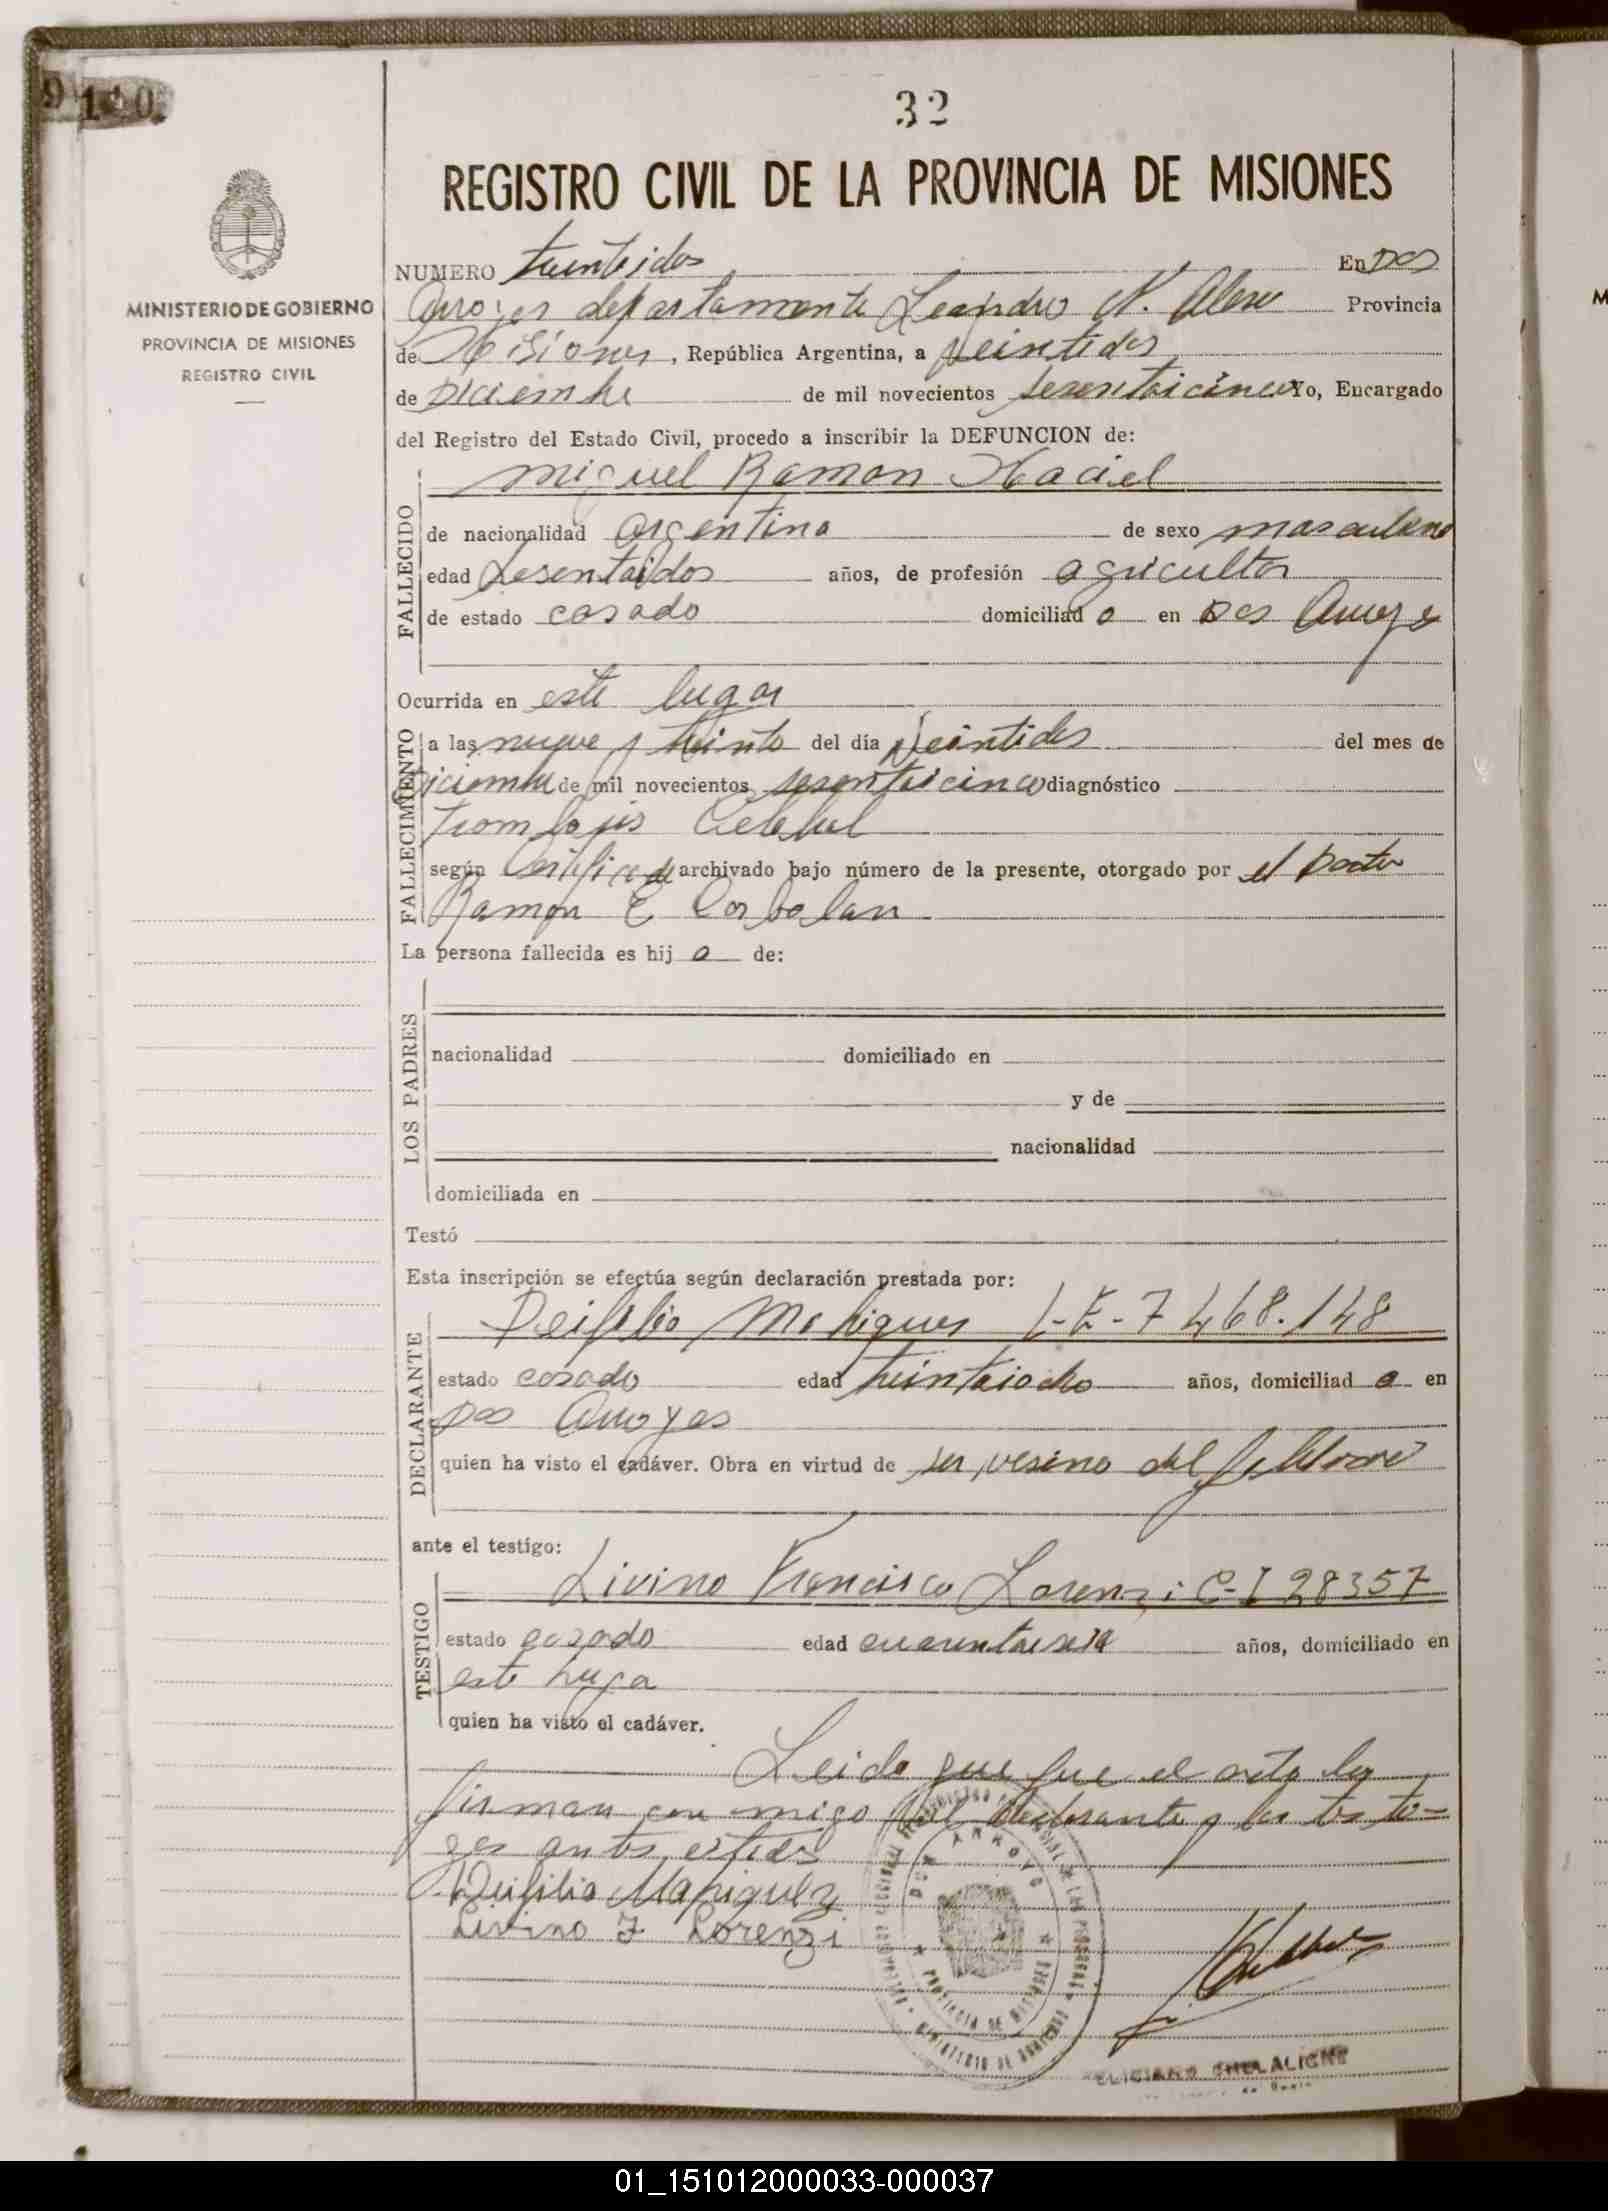 32
REGISTRO CIVIL DE LA PROVINCIA DE MISIONES
MINISTERIO DE GOBIERNO
PROVINCIA DE MISIONES
REGISTRO CIVIL
NUMERO treintidos En Dos
Arroyos departamento Leandro N. Alem Provincia
de Misiones, República Argentina, a veintidos
de Diciembre de mil novecientos sesentaicinco Yo, Encargado
del Registro del Estado Civil, procedo a inscribir la DEFUNCION de:
Miguel Ramon Maciel
FALLECIDO
de nacionalidad argentina de sexo masculino
edad sesentaidos años, de profesión agricultor
de estado casado domiciliad o en Dos Arroyos
Ocurrida en este lugar
FALLECIMIENTO
a las nueve y treinta del día veintidos del mes de
Diciembre de mil novecientos sesentaicinco diagnóstico
Trombosis Celebral
según Certificado archivado bajo número de la presente, otorgado por el Doctor
Ramon E
La persona fallecida es hij o de:
LOS PADRES
nacionalidad domiciliado en
y de
nacionalidad
domiciliada en
Testó
Esta inscripción se efectúa según declaración prestada por:
DECLARANTE
Deifilio Mahiques L-E-7468.148
estado casado edad treintaiocho años, domiciliad o en
Dos Arroyos
quien ha visto el cadáver. Obra en virtud de ser vesino del
ante el testigo:
TESTIGO
Livino Francisco Lorenzi C-I 28357
estado casado edad cuarentaiseis años, domiciliado en
este lugar
quien ha visto el cadáver.
Leida que fue el acta la
firman con migo del declarante y los testi-
gos antes
Deifilio
Livino F Lorenzi
DOS ARROYOS
PROVINCIA DE MISIONES
MINISTERIO DE GOBIERNO
01_151012000033-000037